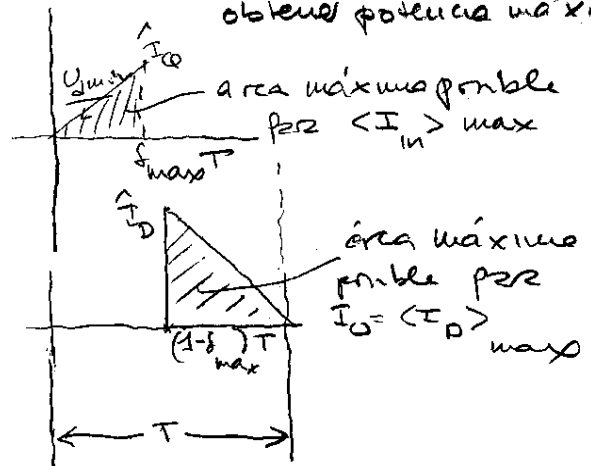 obtener potencia máxi
Î_CQ
U_dmin
área máxima posible
para <I_in> max
δ_max T
Î_D
área máxima
posible para
I_O = <I_D> max
(1-δ_max) T
T